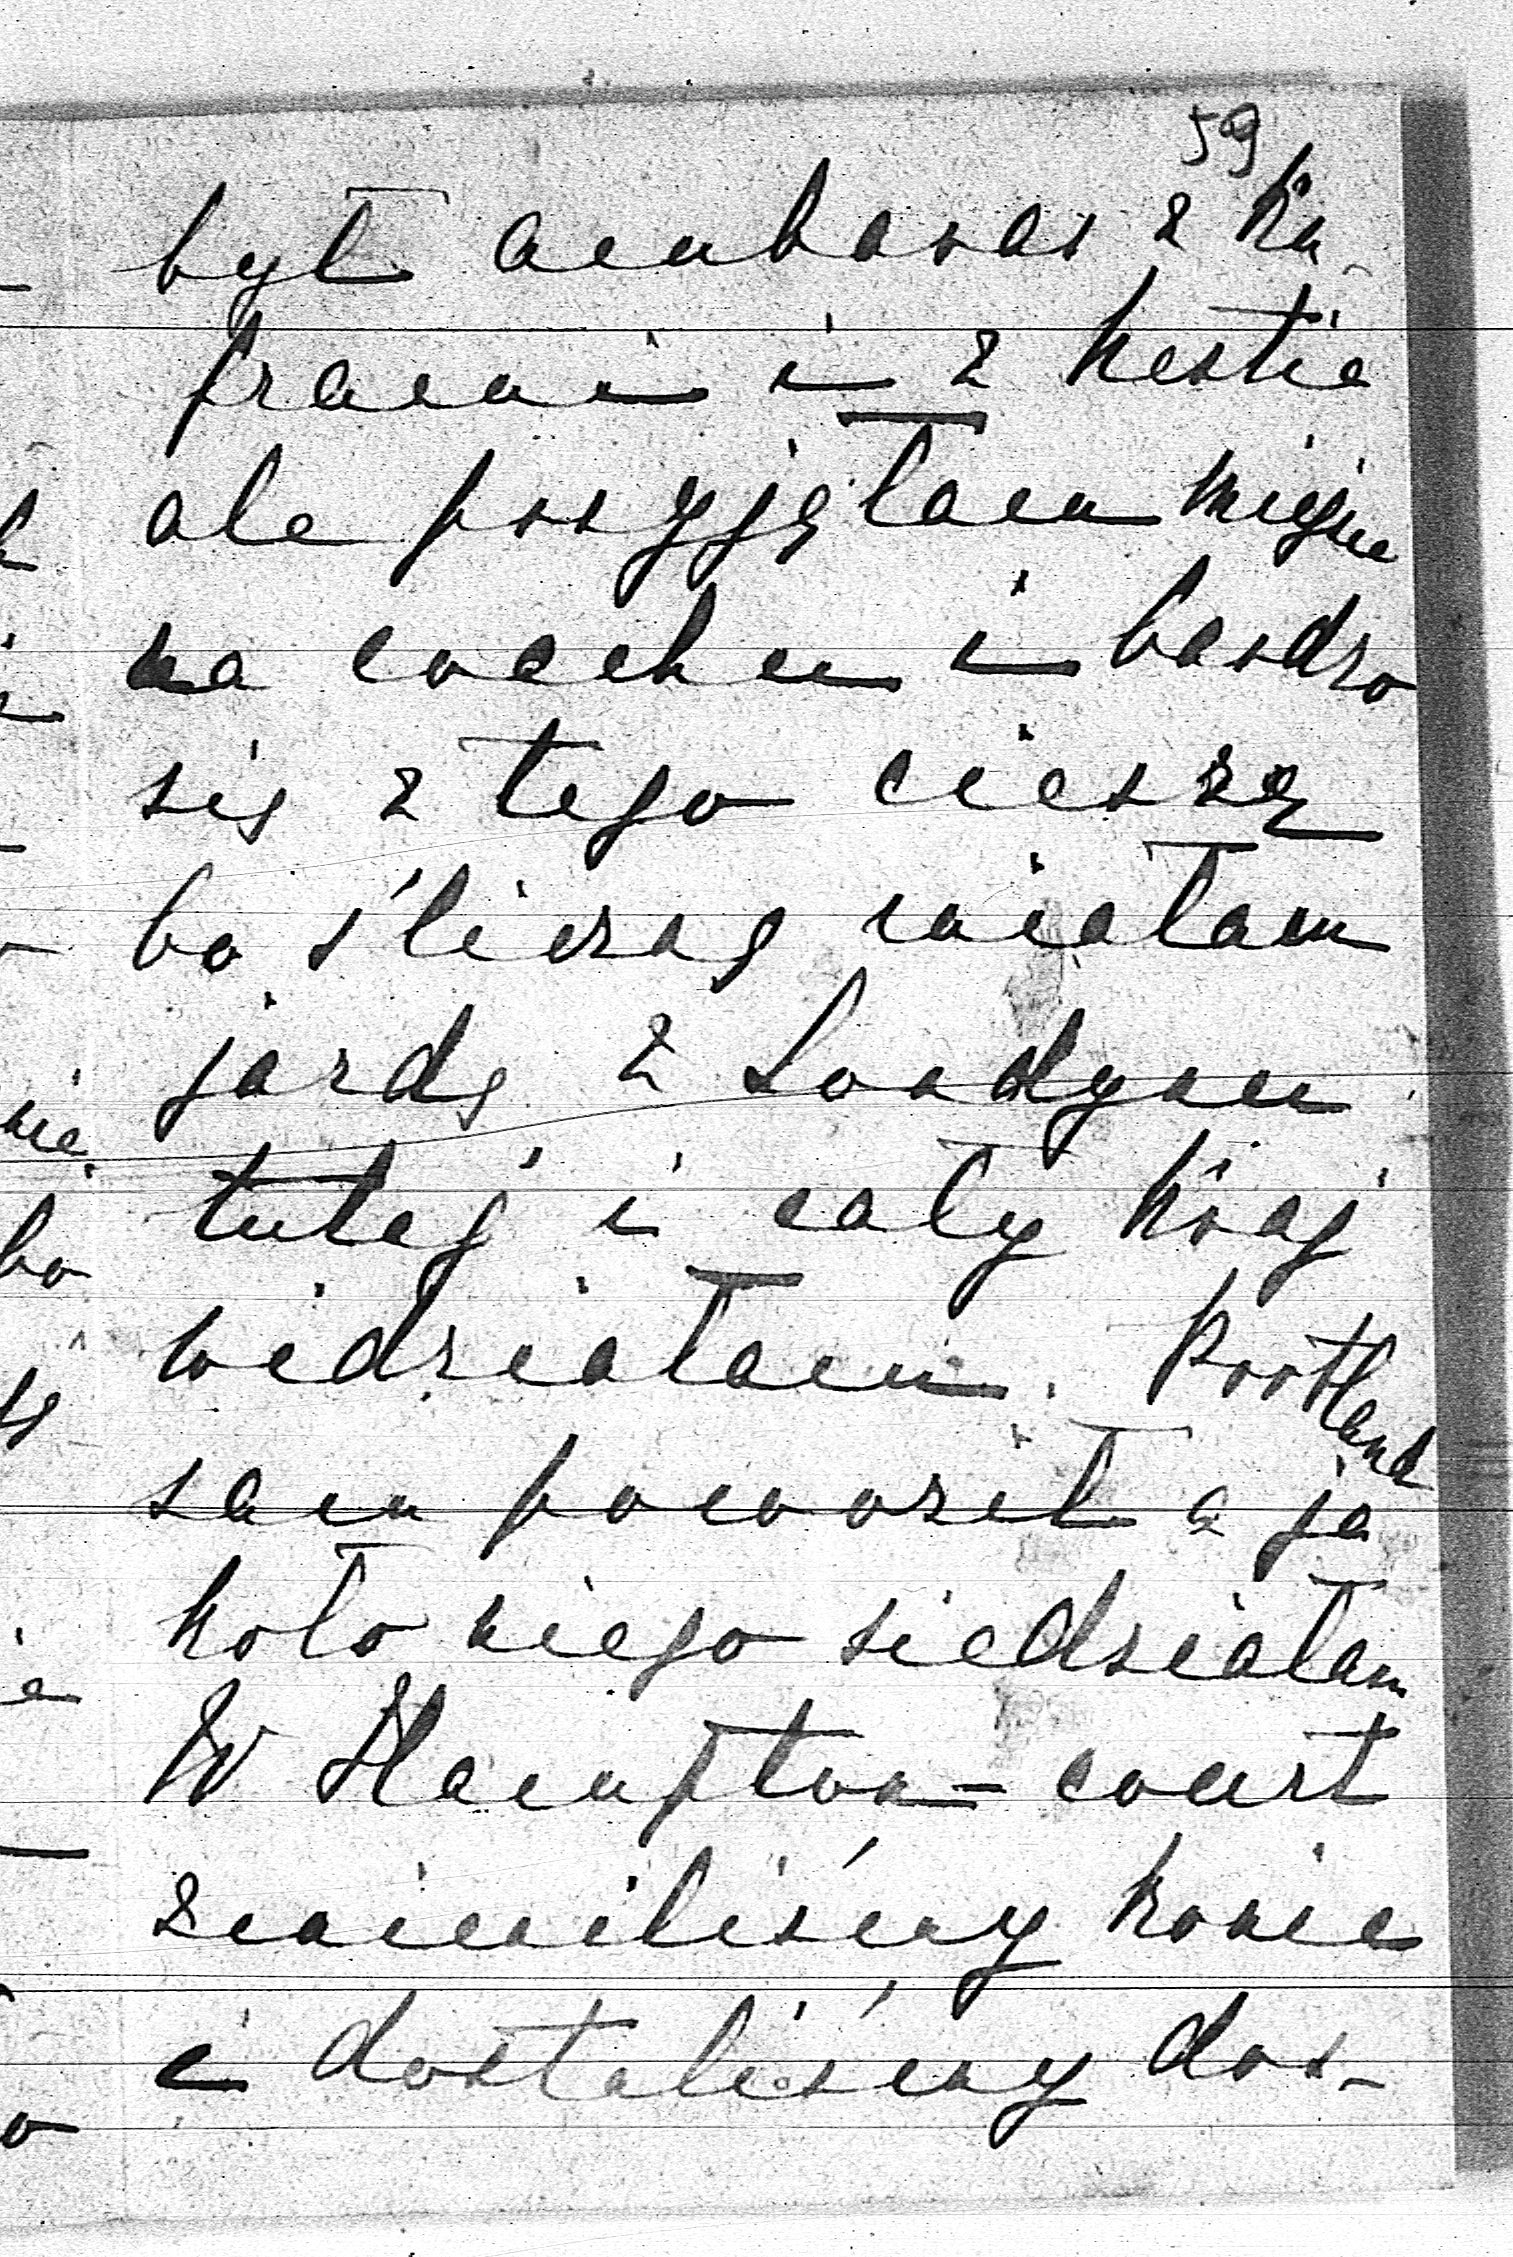 59
był ambaras z ku-
frami i z Kestie
ale przyjęłam miejsce
na coachu i bardzo
się z tego cieszę
bo śliczną miałam
jazdę z Londynu
tutej i cały kraj
widziałam. Portland
sam powoził a ja
koło niego siedziałam
W Hampton-court
zmieniliśmy konie
i dostaliśmy dos-